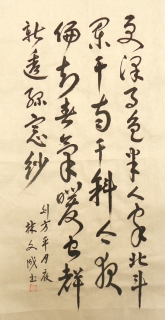 更深月色半人家北斗
闌干南斗斜今夜
偏知春氣暖虫聲
新透綠窗紗
劉方平月夜
林文